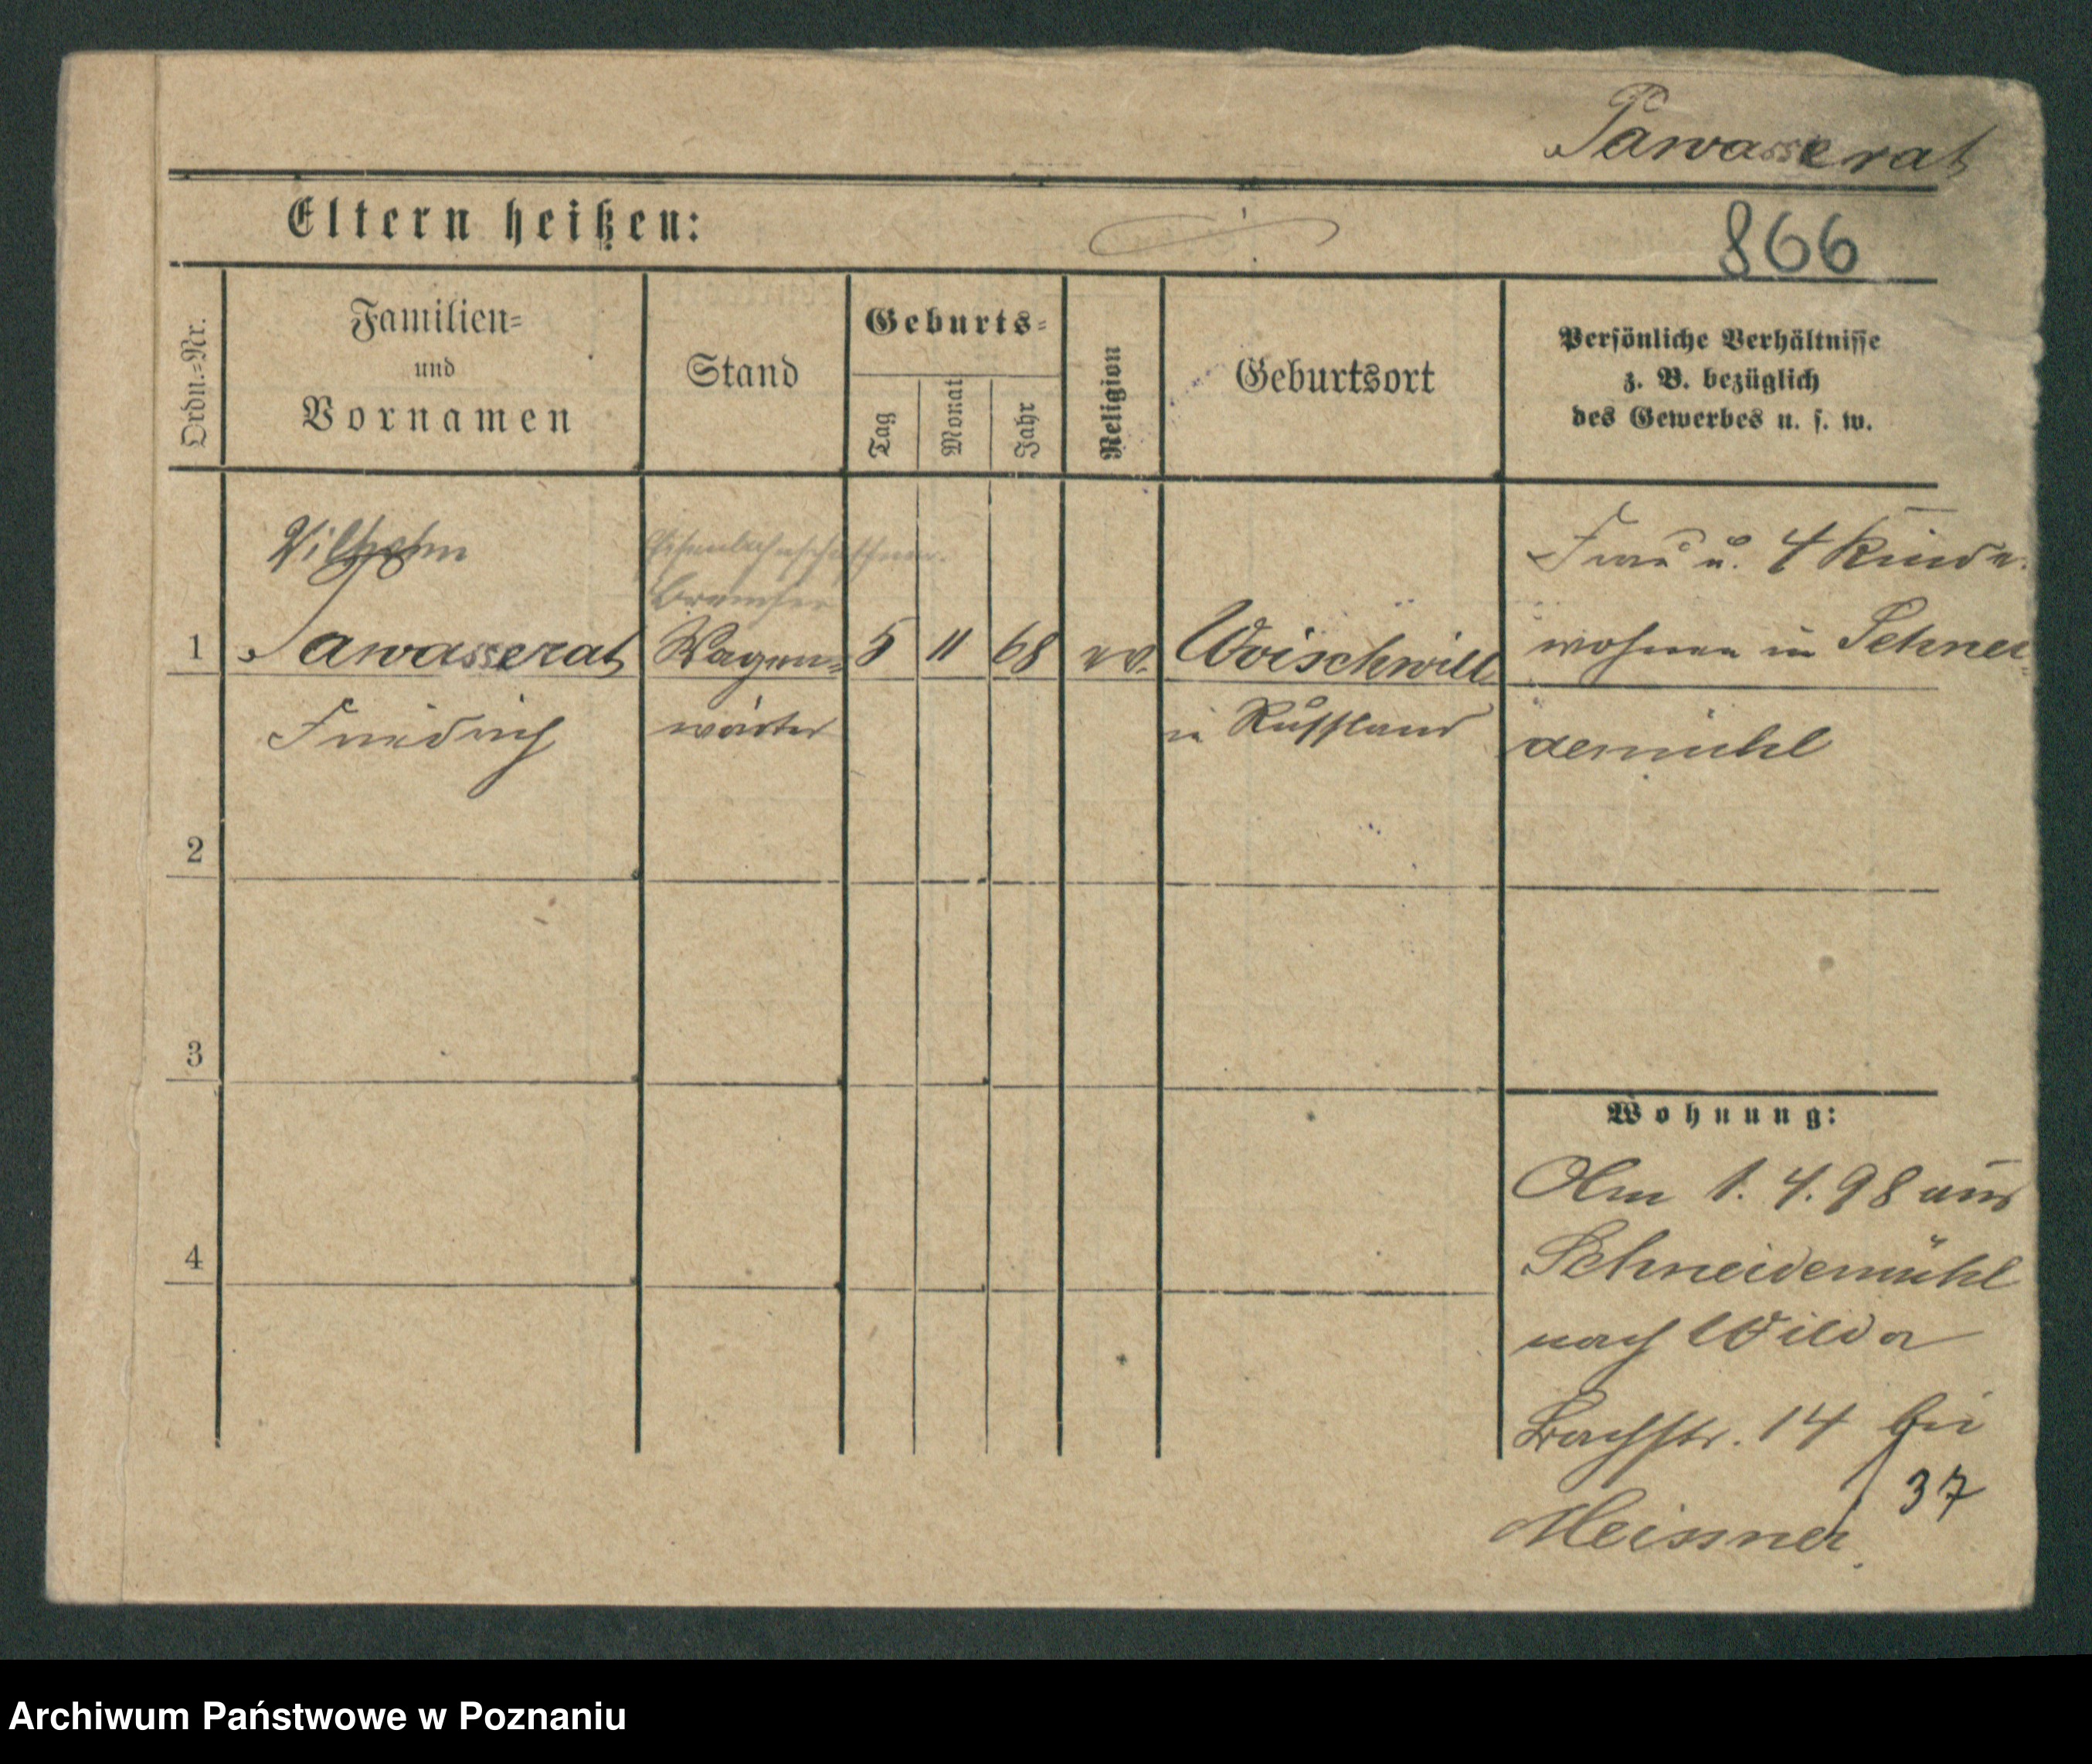 Pawasserat
Eltern heißen:
866
Ordn.-Nr.
Familien-
und
Vornamen
Stand
Geburts-
Tag
Monat
Jahr
Religion
Geburtsort
Persönliche Verhältnisse
z. B. bezüglich
des Gewerbes u. s. w.
Wilhelm
Eisenbahnschaffner.
Bremser
Frau u. 4 Kinder
1 Pawasserat Wagen- 5 11 68 ev. Woischwill wohnen in Schnei-
Friedrich wärter in Russland demühl
2
3
Wohnung:
4
Am 1. 4. 98 aus
Schneidemühl
nach Wilda
Bachstr. 14 bei
37
Meissner.
Archiwum Państwowe w Poznaniu